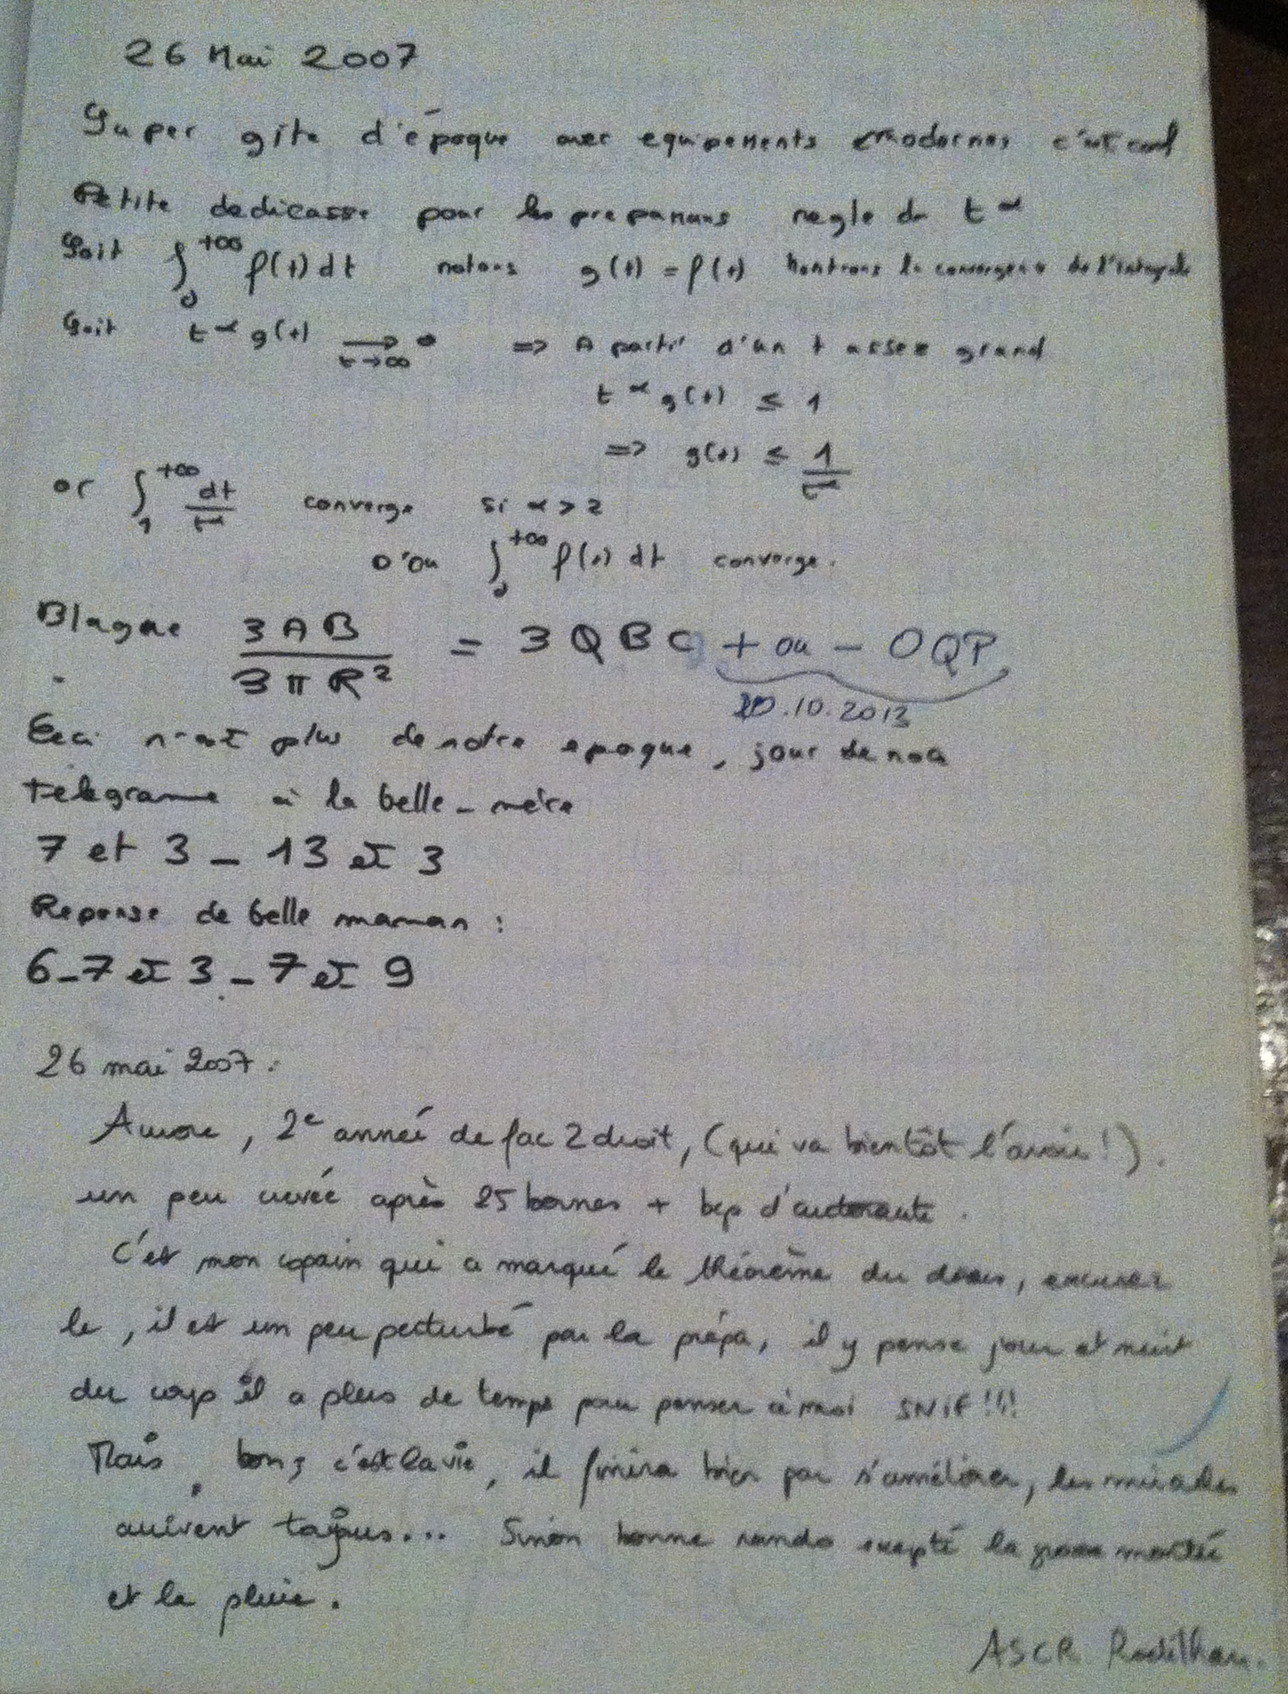 26 Mai 2007
Super gite d'époque avec equipements modernes c'est cool
Petite dedicasse pour les preparans regle du t^α
Soit ∫_0^{+∞} f(t) dt notons g(t) = f(t) Montrons la convergence de l'integrale
Soit t^α g(t) ⟶_{t→∞} 0 => A partir d'un t assez grand
t^α g(t) ≤ 1
=> g(t) ≤ 1/t^α
or ∫_1^{+∞} dt/t^α converge si α > 2
D'ou ∫_0^{+∞} f(t) dt converge.
Blague 3AB/3πR² = 3QBC + ou - OQP
20.10.2013
Ceci n'est plus de notre epoque, jour de noce
telegrame à la belle-mère
7 et 3 - 13 et 3
Reponse de belle maman :
6-7 et 3 - 7 et 9
26 mai 2007 :
Aurore, 2e année de fac 2 droit, (qui va bientôt l'avoir !).
un peu crevée après 25 bornes + bcp d'autoroute.
C'est mon copain qui a marqué le théorème du dessus, excusez
le, il est un peu perturbé par la prépa, il y pense jour et nuit
du coup il a plus de temps pour penser à moi SNIF !!!!
Mais, bon, c'est la vie, il finira bien par s'améliorer, les miracles
arrivent toujours... Sinon bonne rando excepté la grosse montée
et la pluie.
ASCR